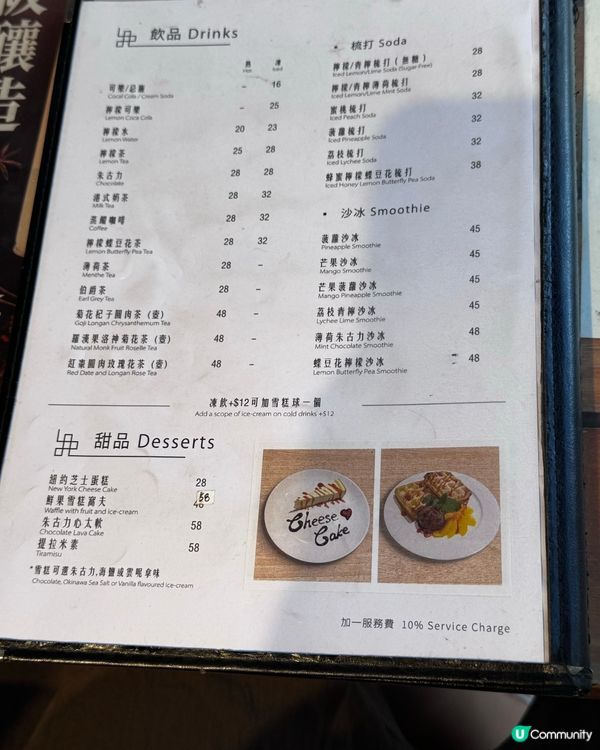 釀造
飲品 Drinks
熱 凍
Hot Iced
可樂/忌廉 – 16
Coca Cola / Cream Soda
檸檬可樂 – 25
Lemon Coca Cola
檸檬水 20 23
Lemon Water
檸檬茶 25 28
Lemon Tea
朱古力 28 28
Chocolate
港式奶茶 28 32
Milk Tea
蒸餾咖啡 28 32
Coffee
檸檬蝶豆花茶 28 32
Lemon Butterfly Pea Tea
薄荷茶 28 –
Menthe Tea
伯爵茶 28 –
Earl Grey Tea
菊花杞子圓肉茶 (壺) 48 –
Goji Longan Chrysanthemum Tea
羅漢果洛神菊花茶 (壺) 48 –
Natural Monk Fruit Roselle Tea
紅棗圓肉玫瑰花茶 (壺) 48 –
Red Date and Longan Rose Tea
• 梳打 Soda
檸檬/青檸梳打 ( 無糖 ) 28
Iced Lemon/Lime Soda (Sugar-Free)
檸檬/青檸薄荷梳打 28
Iced Lemon/Lime Mint Soda
蜜桃梳打 32
Iced Peach Soda
菠蘿梳打 32
Iced Pineapple Soda
荔枝梳打 32
Iced Lychee Soda
蜂蜜檸檬蝶豆花梳打 38
Iced Honey Lemon Butterfly Pea Soda
• 沙冰 Smoothie
菠蘿沙冰 45
Pineapple Smoothie
芒果沙冰 45
Mango Smoothie
芒果菠蘿沙冰 45
Mango Pineapple Smoothie
荔枝青檸沙冰 45
Lychee Lime Smoothie
薄荷朱古力沙冰 48
Mint Chocolate Smoothie
蝶豆花檸檬沙冰 48
Lemon Butterfly Pea Smoothie
凍飲+$12可加雪糕球一個
Add a scope of ice-cream on cold drinks +$12
甜品 Desserts
紐約芝士蛋糕 28
New York Cheese Cake
鮮果雪糕窩夫 58
Waffle with fruit and ice-cream
朱古力心太軟 58
Chocolate Lava Cake
提拉米素 58
Tiramisu
*雪糕可選朱古力,海鹽或雲呢拿味
Chocolate, Okinawa Sea Salt or Vanilla flavoured ice-cream
Cheese
Cake
加一服務費 10% Service Charge
U Community